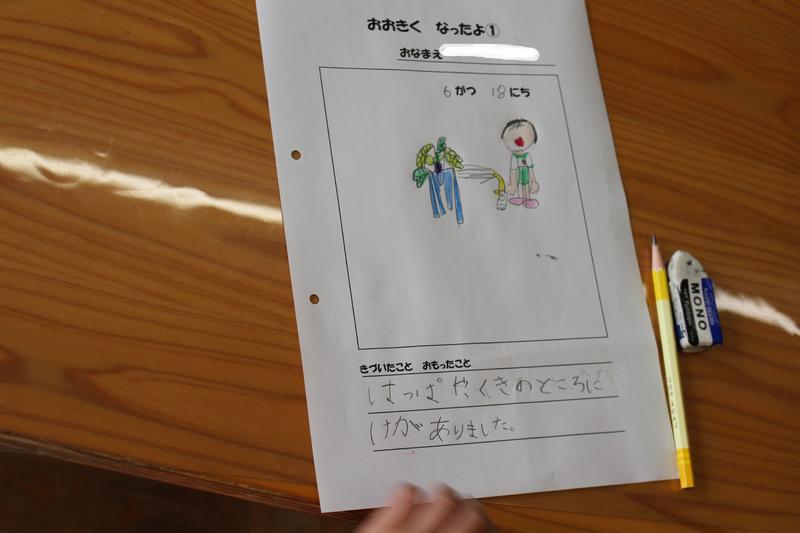 おおきく なったよ①
おなまえ
6がつ 18にち
きづいたこと おもったこと
はっぱやくきのところに
けがありました。
MONO